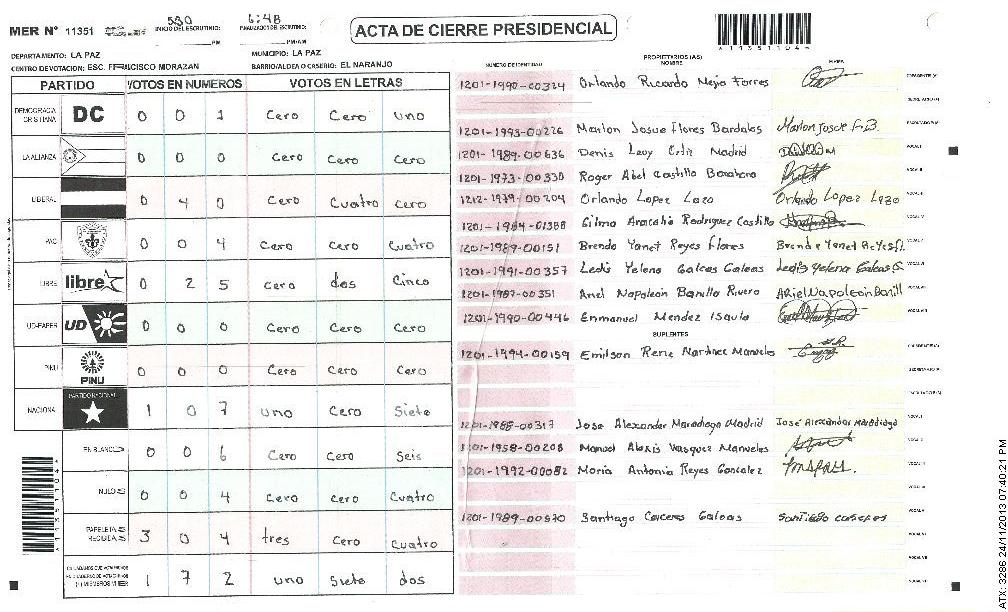 MER N° 11351
5:30
INICIO DE ESCRUTINIO:
PM
6:48
FINALIZACION DE ESCRUTINIO:
PM/AM
ACTA DE CIERRE PRESIDENCIAL
11351104
DEPARTAMENTO: LA PAZ
MUNICIPIO: LA PAZ
CENTRO DE VOTACION: ESC. FRANCISCO MORAZAN
BARRIO/ALDEA O CASERIO: EL NARANJO
PARTIDO VOTOS EN NUMEROS VOTOS EN LETRAS
DEMOCRACIA CRISTIANA DC 0 0 1 Cero Cero Uno
LA ALIANZA 0 0 0 Cero Cero Cero
LIBERAL 0 4 0 Cero Cuatro Cero
PAC 0 0 4 Cero Cero Cuatro
LIBRE libre 0 2 5 Cero dos Cinco
UD-FAPER UD 0 0 0 Cero Cero Cero
PINU PINU 0 0 0 Cero Cero Cero
NACIONAL PARTIDO NACIONAL 1 0 7 uno Cero Siete
EN BLANCO 0 0 6 Cero Cero Seis
NULOS 0 0 4 Cero Cero Cuatro
PAPELETAS RECIBIDAS 3 0 4 tres Cero Cuatro
1 7 2 uno Siete dos
NUMERO DE IDENTIDAD PROPIETARIOS (AS) NOMBRE FIRMA
1201-1990-00324 Orlando Ricardo Mejia Torres PRESIDENTE (A)
SECRETARIO (A)
1201-1993-00226 Marlon Josue Flores Bardales Marlon Josue F.B. ESCRUTADOR (A)
1201-1989-00636 Denis Levy Ortiz Madrid VOCAL I
1201-1973-00330 Roger Abel Castillo Barahona VOCAL II
1212-1979-00204 Orlando Lopez Lazo Orlando Lopez Lazo VOCAL III
1201-1984-01388 Gilma Aracalia Rodriguez Castillo VOCAL IV
1201-1989-00151 Brenda Yanet Reyes Flores Brenda Yanet Reyes f. VOCAL V
1201-1991-00357 Ledis Yelena Galeas Galeas Ledis Yelena Galeas G. VOCAL VI
1201-1987-00351 Ariel Napoleon Bonilla Rivera Ariel Napoleon Bonill VOCAL VII
1201-1990-00446 Enmanuel Mendez Isaula VOCAL VIII
SUPLENTES
1201-1994-00159 Emilson Rene Martinez Manueles PRESIDENTE (A)
SECRETARIO (A)
ESCRUTADOR (A)
1201-1988-00317 Jose Alexander Maradiaga Madrid José Alexander Maradiaga VOCAL I
1201-1958-00208 Manuel Alexis Vasquez Manueles VOCAL II
1201-1992-00082 Maria Antonia Reyes Gonzalez VOCAL III
VOCAL IV
1201-1989-00570 Santiago Caceres Galeas Santiago caceres VOCAL V
VOCAL VI
VOCAL VII
VOCAL VIII
ATX: 3286 24/11/2013 07:40:21 PM